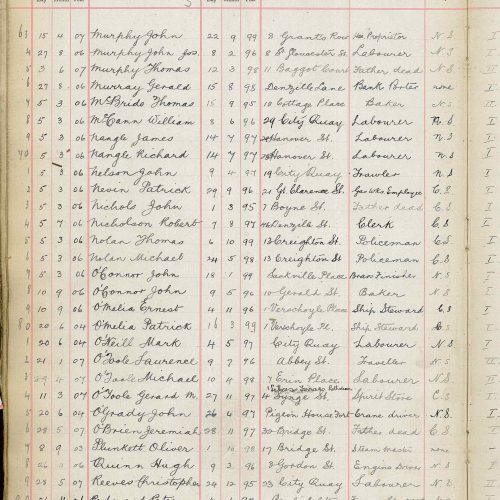 63 15 4 07 Murphy John 22 9 99 3 Grants Row Proprietor N.S. I
4 27 8 06 Murphy John Jos. 8 2 96 8 Gloucester St. Labourer N.S. I
5 3 6 07 Murphy Thomas 12 3 98 11 Baggot Court Father dead N.S. I
6 27 8 06 Murray Gerald 15 8 98 Denzille Lane Bank Porter none I
7 5 3 06 McBride Thomas 15 9 95 10 Cottage Place Baker N.S.
8 5 3 06 McCann William 8 6 96 29 City Quay Labourer N.S. I
9 5 3 06 Nangle James 14 7 97 Hanover St. Labourer N.S. I
70 5 3 06 Nangle Richard 14 7 97 Hanover St. Labourer N.S. I
1 5 3 06 Nelson John 9 4 97 19 City Quay Trawler N.S. I
2 5 3 06 Nevin Patrick 29 9 96 21 Gt. Clarence St. Gas Wks Employee C.S. I
3 5 3 06 Nichols John 1 3 95 7 Boyne St. Father dead C.S. I
4 5 7 06 Nicholson Robert 7 8 97 Denzille St. Clerk C.S. I
5 5 3 06 Nolan Thomas 6 10 99 13 Creighton St. Policeman C.S.
6 5 3 06 Nolan Michael 24 5 98 13 Creighton St. Policeman C.S. I
7 5 3 06 O'Connor John 18 1 99 Sackville Place Brass Finisher N.S. I
8 10 9 06 O'Connor John 9 5 96 10 Gerald St. Baker N.S. I
9 10 9 06 O'Melia Ernest 4 11 96 1 Verschoyle Place Ship Steward C.S. I
80 20 6 04 O'Melia Patrick 16 3 99 Verschoyle Pl. Ship Steward C.S. I
1 20 6 04 O'Neill Mark 4 5 97 City Quay Labourer N.S. I
2 21 1 07 O'Toole Laurence 9 7 96 Abbey St. Traveller N.S.
3 29 4 07 O'Toole Michael 10 4 98 7 Erin Place Labourer N.S.
4 11 3 07 O'Toole Gerard M. 27 11 97 4 Synge St. Spirit Store C.S. I
5 20 6 04 O'Grady John 26 4 97 Pigeon House Fort Crane driver N.S. I
6 28 5 07 O'Brien Jeremiah 28 11 97 32 Bridge St. Father dead C.S. I
7 4 8 09 Plunkett Oliver 1 10 98 17 Bridge St. Steam Master none
8 26 11 06 Quinn Hugh 9 2 96 3 Gordon St. Engine Driver N.S. I
9 28 5 07 Reeves Christopher 24 12 95 23 City Quay Labourer N.S. I